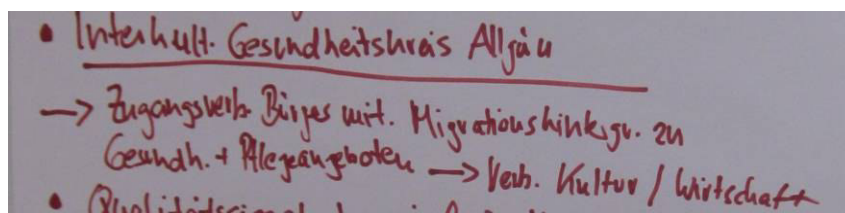 • Interkult. Gesundheitskreis Allgäu
→ Zugangsverb. Bürger mit. Migrationshintergr. zu
Gesundh. + Pflegeangeboten → Verb. Kultur / Wirtschaft
•